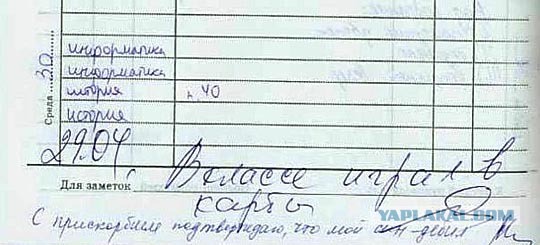 Среда 30
информатика
информатика
история п. 40
история
29.04
Для заметок В классе играл в
карты
С прискорбием подтверждаю, что мой сын-дебил
YAPLAKAL.COM